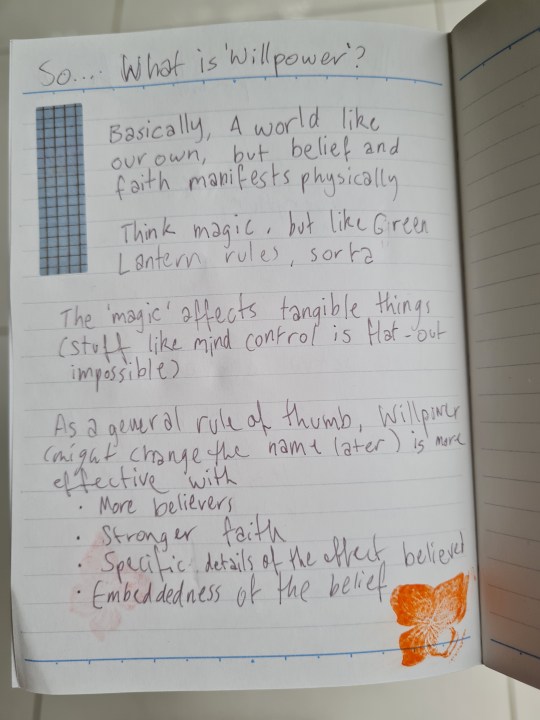 So.... What is 'Willpower'?
Basically, A world like
our own, but belief and
faith manifests physically
Think magic, but like Green
Lantern rules, sorta
The 'magic' affects tangible things
(stuff like mind control is flat-out
impossible)
As a general rule of thumb, Willpower
(might change the name later) is more
effective with
· More believers
· Stronger faith
· Specific details of the effect believed
· Embeddedness of the belief